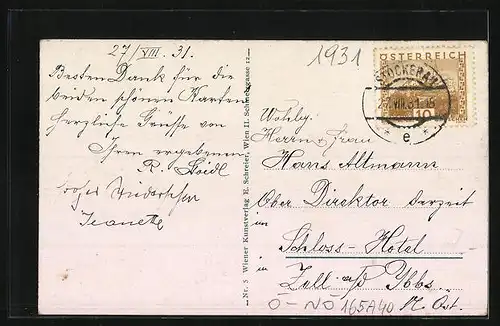 27/VIII. 31.
Besten Dank für die
beiden schönen Karten
herzliche Grüsse von
Ihren ergebenen
R.
Nr. 5 Wiener Kunstverlag E. Schreier, Wien II. Schmelzgasse 12
1931
ÖSTERREICH
STOCKERAU
27. VIII. 31. 15
10
* e *
Wohlg.
Herrn u. Frau
Hans Altmann
Ober Direktor derzeit
im
Schloss-Hotel
in
Zell a/d Ybbs
Ö-NÖ 165A40
N. Öst.